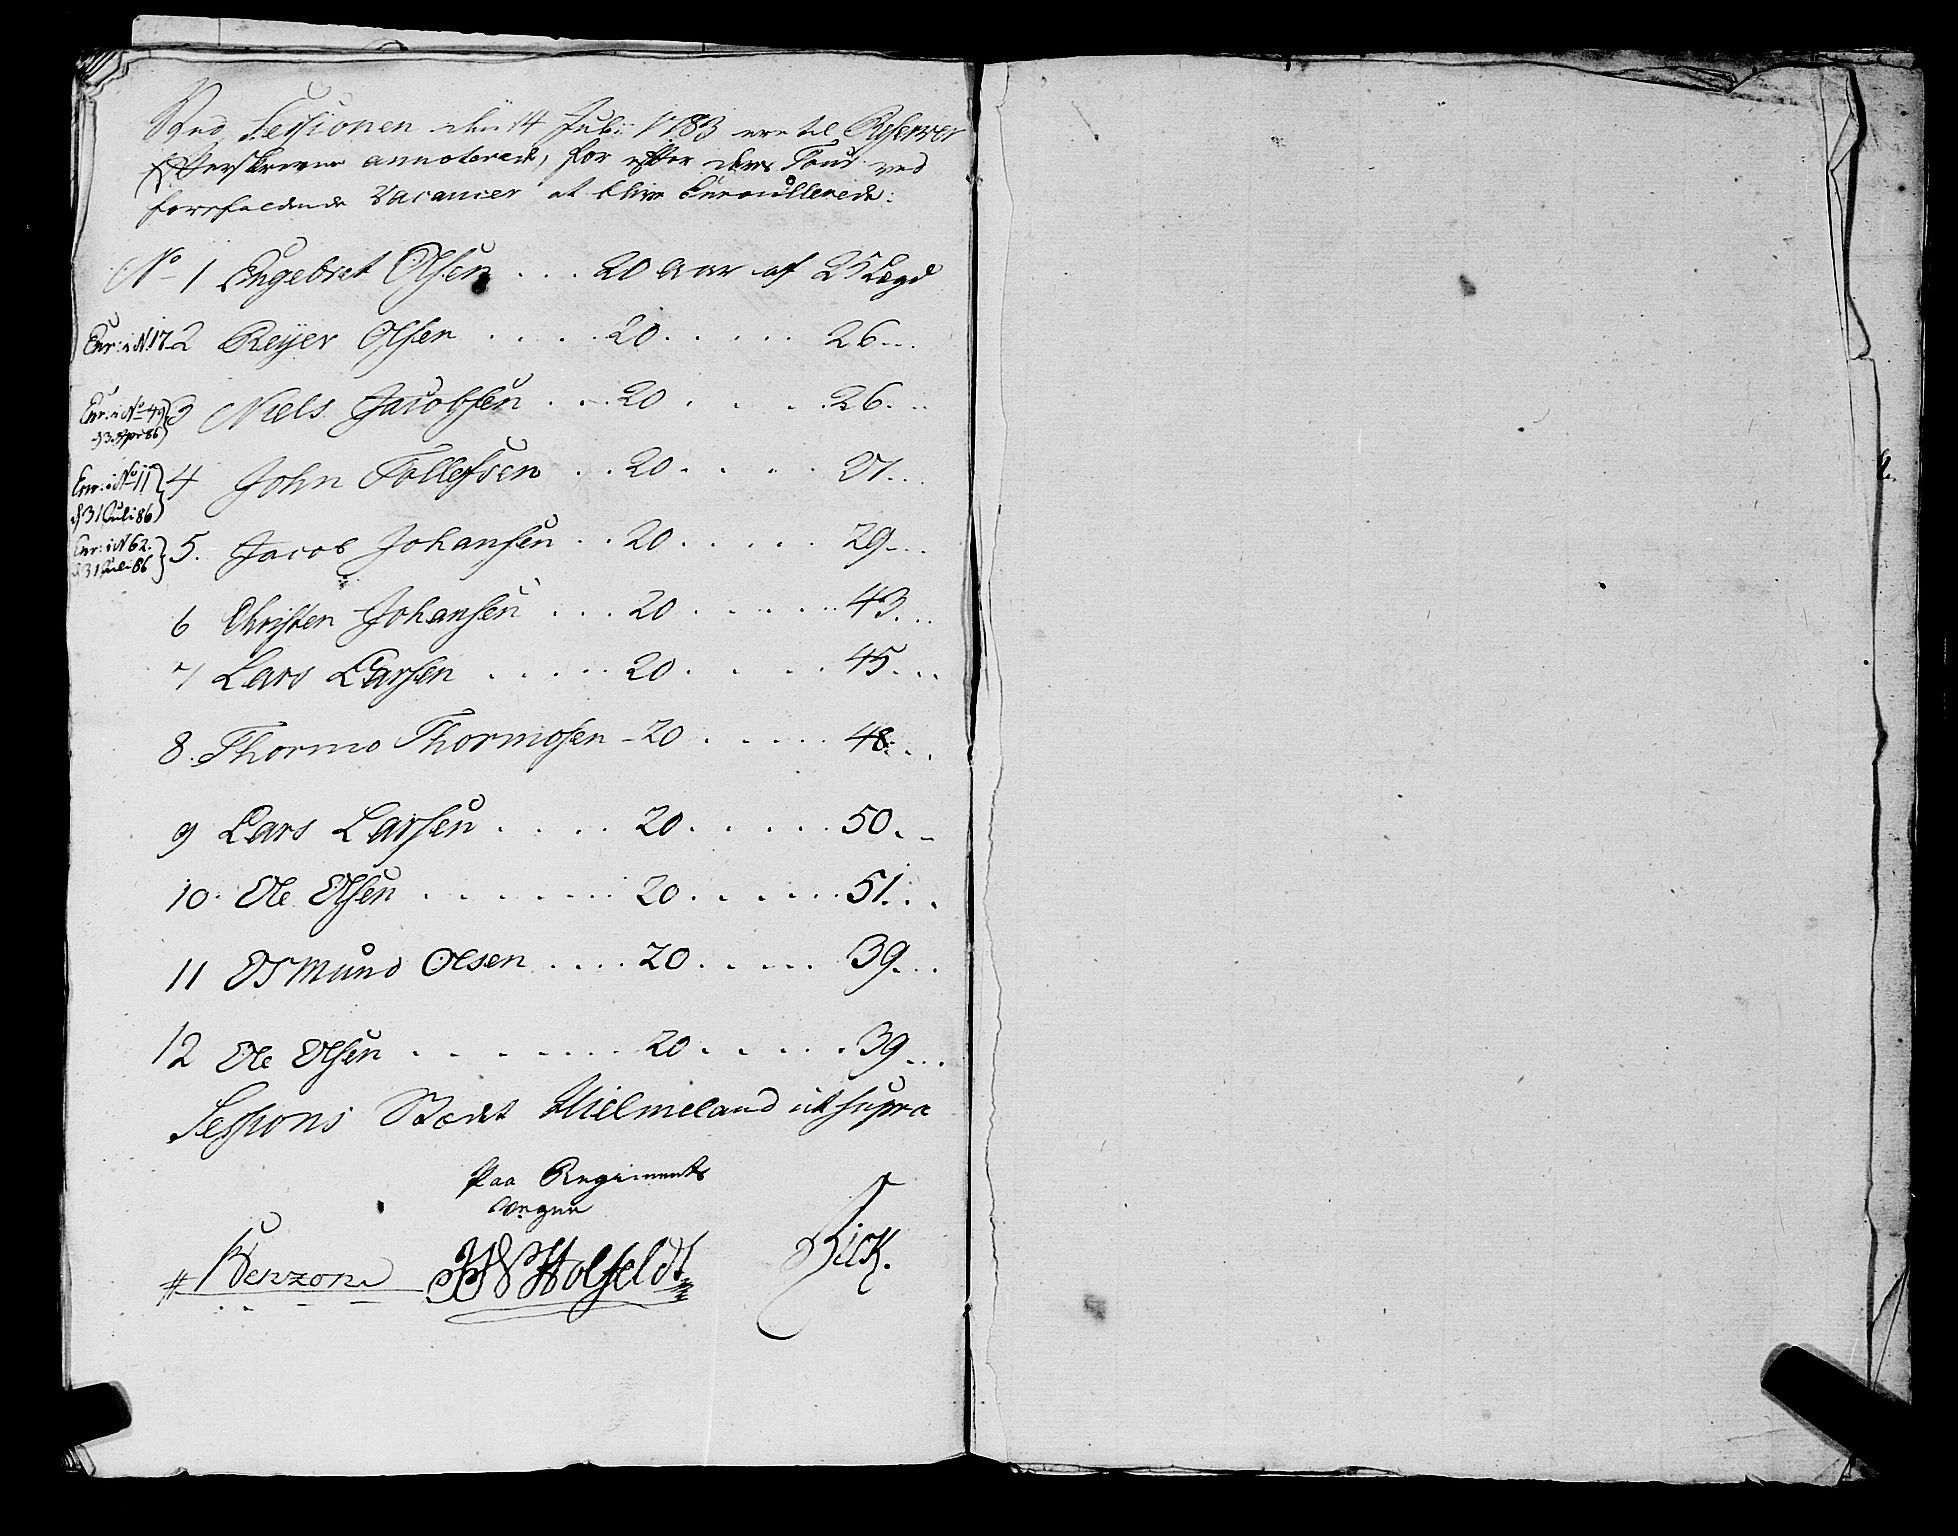 Ved Sessionen den 14 Julii 1783 ere til Reserver
Efterskrevne annoterede, for efter deres Tour ved
forefaldende Vacancer at blive Enroullerede:
No 1 Engebret Olsen . . . 20 Aar af 25 Lægd
Enr: i N. 17. 2 Reyer Olsen . . . . 20 . . . . . 26 . . .
Enr: i No 49 3 Niels Jacobsen . . . 20 . . . . 26 . . .
d 3 Apr 86
Enr: i No 11 4 John Tollefsen . . 20 . . . . 27 . . .
d 31 Juli 86
Enr: i N 62. 5. Jacob Johansen . . 20 . . . . . 29 . . .
d 31 Juli 86
6 Christen Johansen . . . 20 . . . . . . 43 . . .
7 Lars Larsen . . . . . 20 . . . . . 45 . . .
8. Thormo Thormosen - 20 . . . . . 48 . . .
9 Lars Larsen . . . . 20 . . . . . 50 . -
10. Ole Olsen . . . . . . . 20 . . . . . . 51 . . .
11 Osmund Olsen . . . . 20 . . . . . 39 . . .
12 Ole Olsen . . . . . . . 20 . . . . . 39 . . .
Sessions Stædet Hielmeland ut supra
Paa Regiments
Vegne
Benzon Holfeldt Bick.